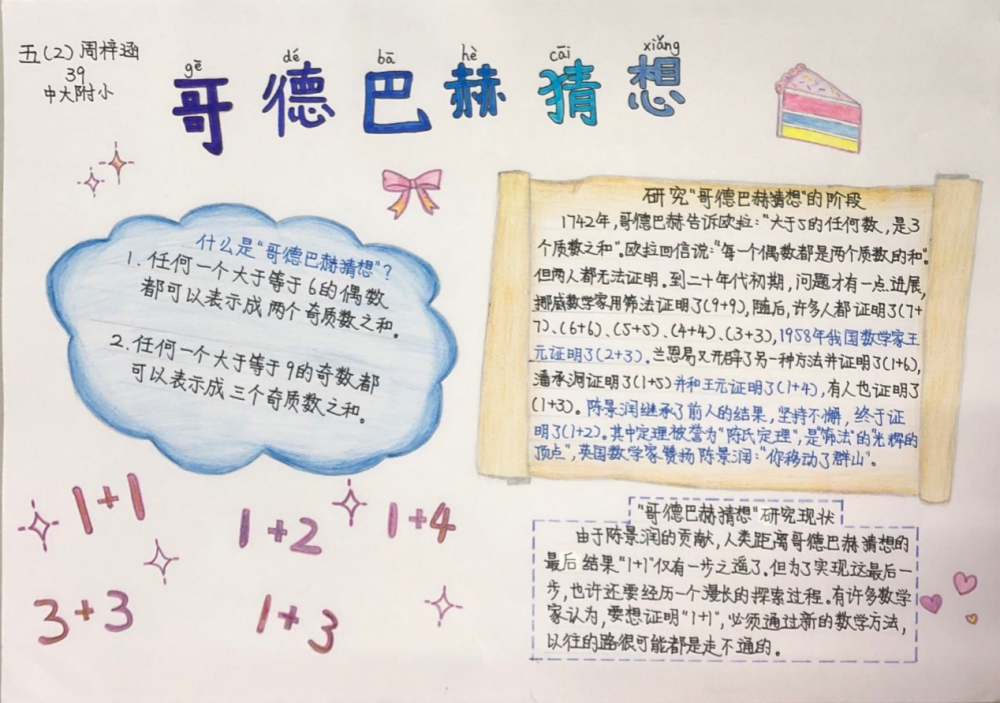 五(2)周梓涵
39
中大附小
gē dé bā hè cāi xiǎng
哥德巴赫猜想
什么是"哥德巴赫猜想"?
1.任何一个大于等于6的偶数
都可以表示成两个奇质数之和。
2.任何一个大于等于9的奇数都
可以表示成三个奇质数之和。
研究"哥德巴赫猜想"的阶段
1742年,哥德巴赫告诉欧拉:"大于5的任何数,是3
个质数之和".欧拉回信说:"每一个偶数都是两个质数的和".
但两人都无法证明.到二十年代初期,问题才有一点进展,
挪威数学家用筛法证明了(9+9),随后,许多人都证明了(7+
7)、(6+6)、(5+5)、(4+4)、(3+3),1958年我国数学家王
元证明了(2+3)。兰恩易又开辟了另一种方法并证明了(1+6),
潘承洞证明了(1+5)并和王元证明了(1+4),有人也证明了
(1+3)。陈景润继承了前人的结果,坚持不懈,终于证
明了(1+2)。其中定理被誉为"陈氏定理",是"筛法"的"光辉的
顶点",英国数学家赞扬陈景润:"你移动了群山"。
"哥德巴赫猜想"研究现状
由于陈景润的贡献,人类距离哥德巴赫猜想的
最后结果"1+1"仅有一步之遥了.但为了实现这最后一
步,也许还要经历一个漫长的探索过程。有许多数学
家认为,要想证明"1+1",必须通过新的数学方法,
以往的路很可能都是走不通的。
1+1
1+2
1+4
3+3
1+3